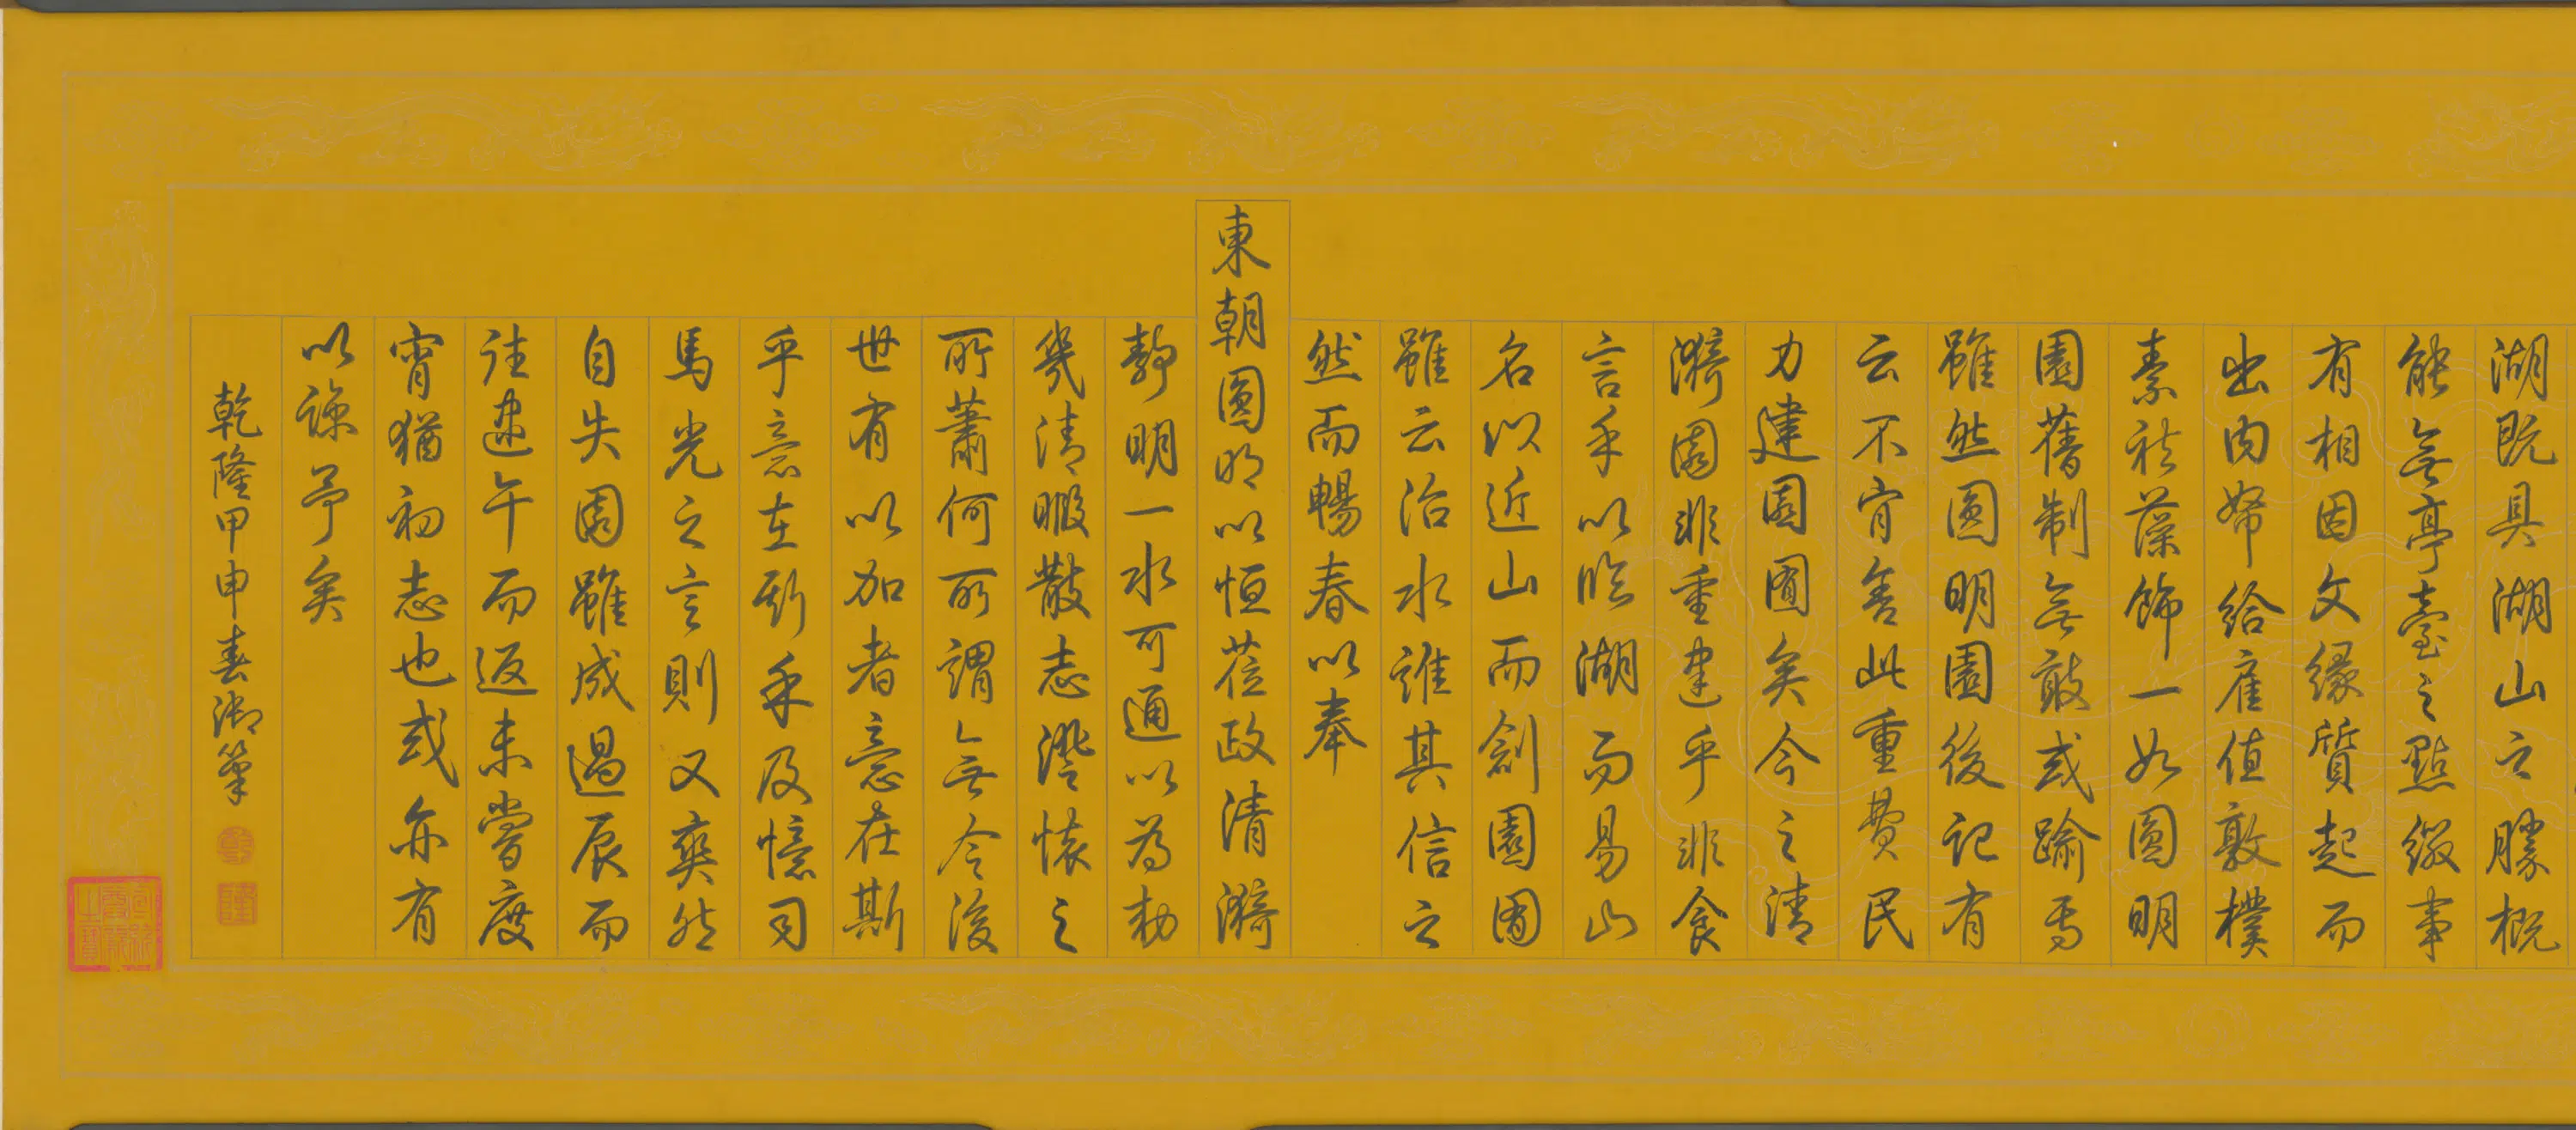 湖既具湖山之勝概
能無亭臺之點綴事
有相因文緣質起而
出內帑給雇值敦樸
素祛藻飾一如圓明
園舊制無敢或踰焉
雖然圓明園後記有
云不肯舍此重費民
力建園囿矣今之清
漪園非重建乎非食
言乎以臨湖而易山
名以近山而創園囿
雖云治水誰其信之
然而暢春以奉
東朝圓明以恒莅政清漪
靜明一水可通以為勅
幾清暇散志澄懷之
所蕭何所謂無令後
世有以加者意在斯
乎意在斯乎及憶司
馬光之言則又爽然
自失園雖成過辰而
往逮午而返未嘗度
宵猶初志也或亦有
以諒予矣
乾隆甲申春御筆